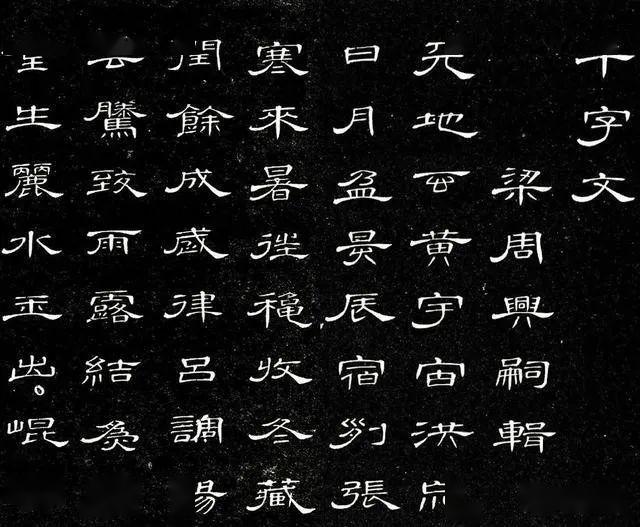 千字文
梁周興嗣輯
天地玄黃宇宙洪荒
日月盈昃辰宿列張
寒來暑往穐收冬藏
閏餘成歲律呂調陽
云騰致雨露結為
金生麗水玉出崐